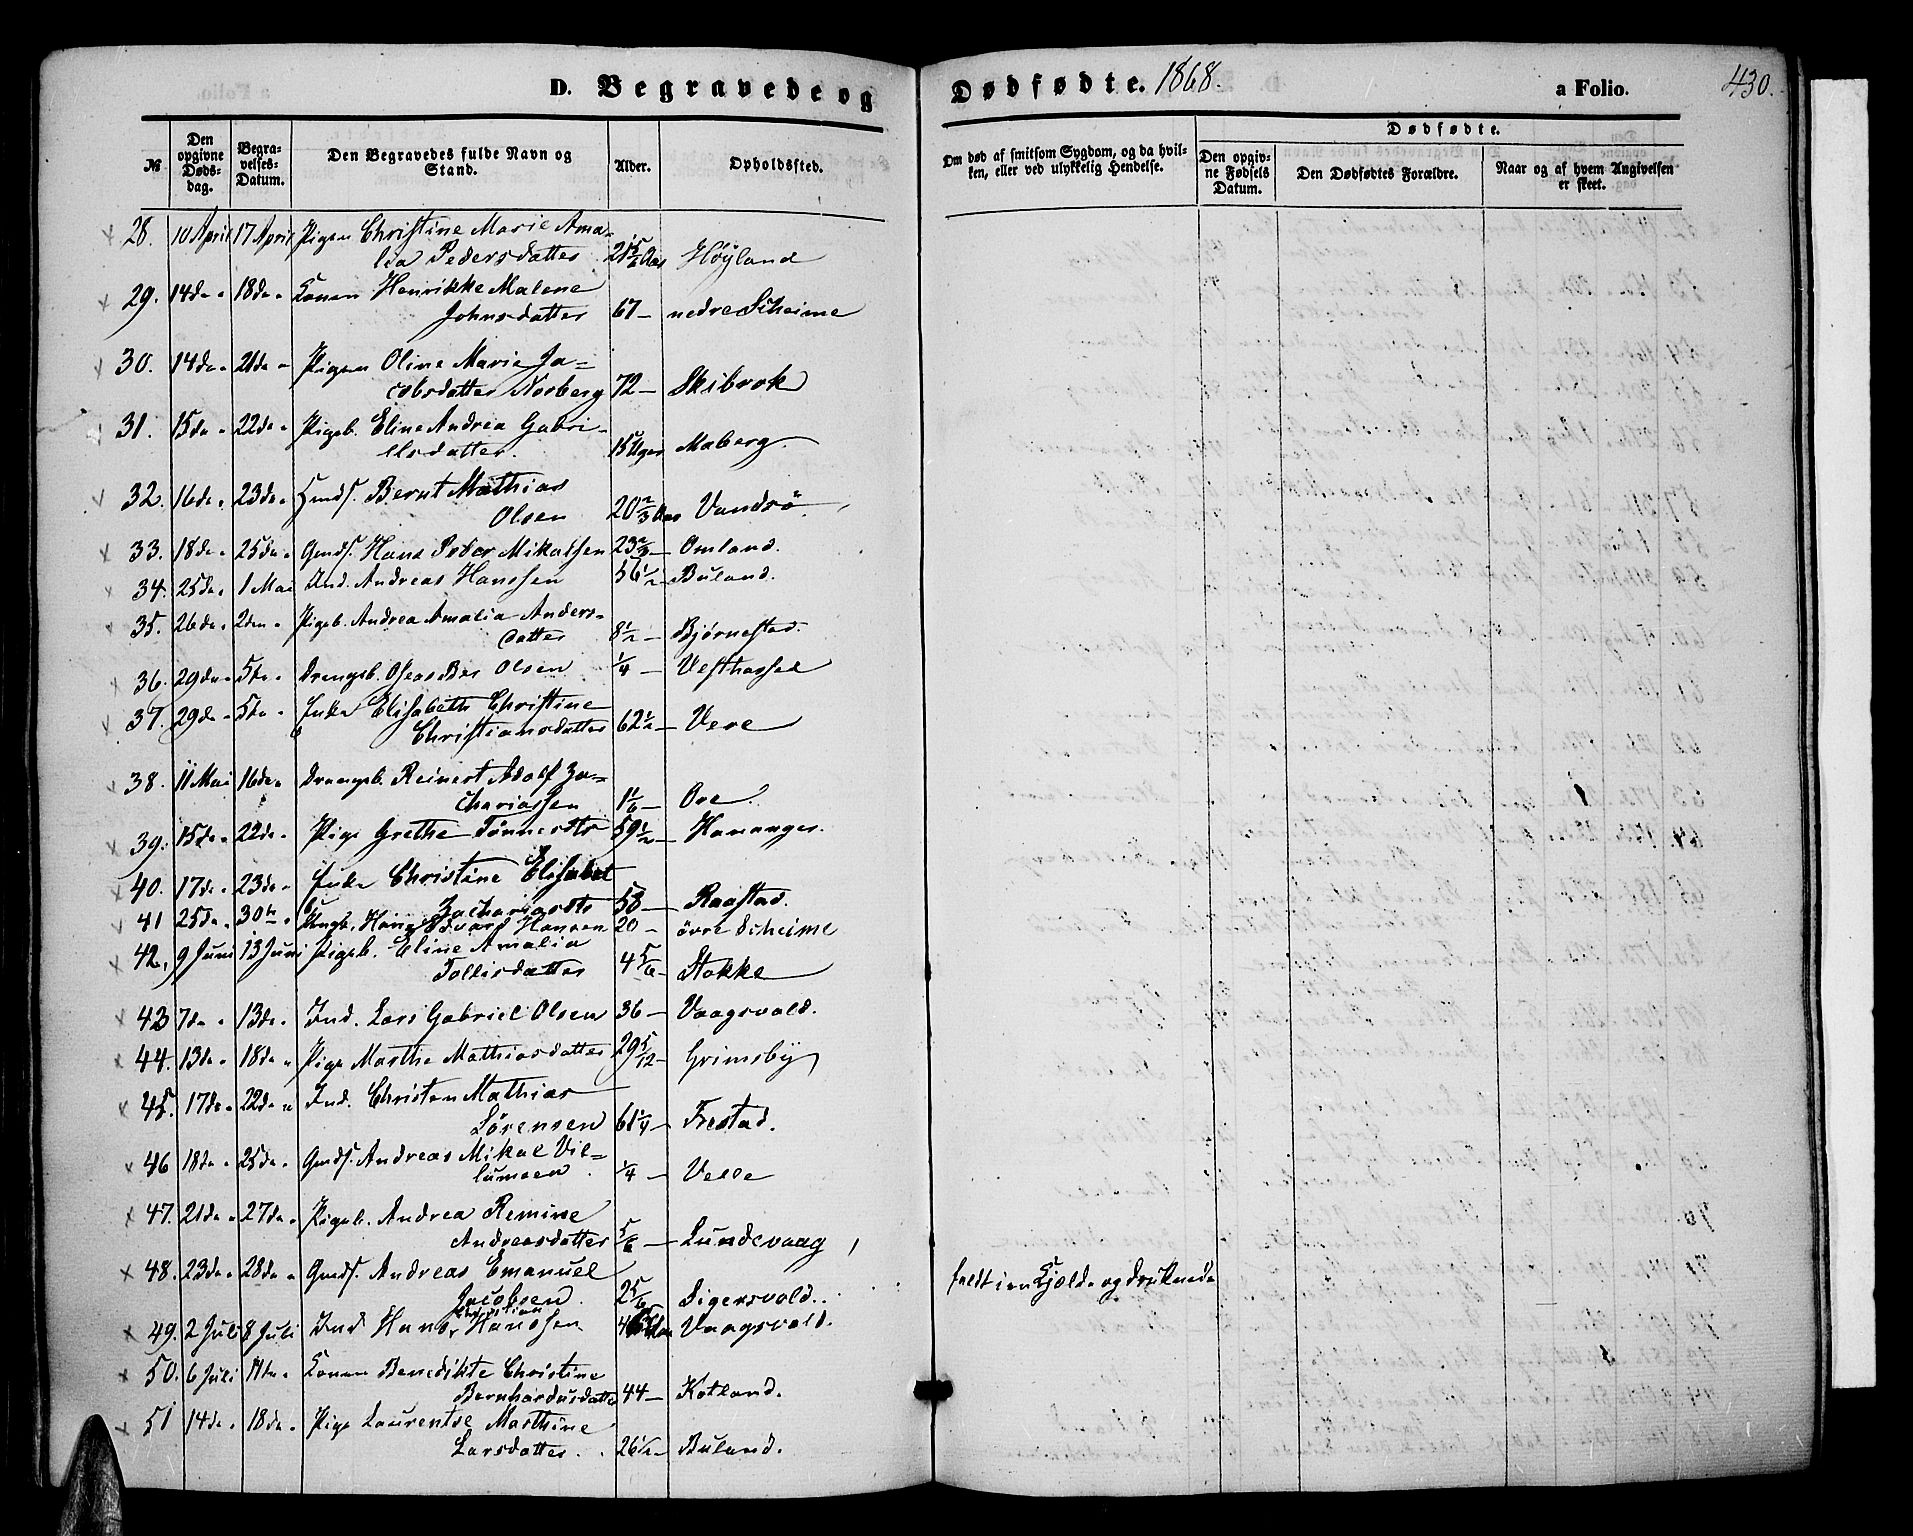 D. Begravede og Dødfødte. 1868. a Folio. 430.
№ Den opgivne Døds-dag. Begra-velses-Datum. Den Begravedes fulde Navn og Stand. Alder. Opholdssted. Om død af smitsom Sygdom, og da hvil-ken, eller ved ulykkelig Hendelse. Dødfødte. Den opgiv-ne Fødsels Datum. Den Dødfødtes Forældre. Naar og af hvem Angivelsen er skeet.
28. 10 April 17 April Pigen Christine Marie Ama-
lia Pedersdatter 21 5/6 Aar Höyland
29. 14de " 18de " Konen Henrikke Malene
Johnsdatter 67 — nedre Skeime
30. 14de " 21de " Pigen Oline Marie Ja-
cobsdatter Norberg 72 — Skibrok
31. 15de " 22de " Pigeb. Eline Andrea Gabri-
elsdatter. 15 Uger Maberg.
32. 16de " 23de " Gmds. Bernt Mathias
Olsen 20 2/3 Aar Vandsö.
33. 18de " 25de " Gmds. Hans Peter Mikalsen 23 2/3 — Omland.
34. 25de " 1 Mai Ind. Andreas Hanssen 56 1/2 — Buland.
35. 26de " 2den " Pigeb. Andrea Amalia Anders-
datter 8 1/2 — Bjørnestad.
36. 29de " 5te " Drengeb. Olsen 1/4 — Vesthassel
37. 29de " 5te " Enke Elisabeth Christine
Christiansdatter 62 1/2 — Vere
38. 11 Mai 16de " Drengeb. Reinert Adolf Za-
chariassen 1 1/6 — Ore.
39. 15de " 22de " Pige Grethe Tønnesdtr 59 1/2 — Hananger.
40. 17de " 23de " Enke Christine Elisabet
Zachariasdtr 58 — Raastad.
41 25de " 30te " Ungk. Hans Edvard Hansen 20 — övre Skeime
42. 9 Juni 13 Juni Pigeb. Eline Amalia
Tollisdatter 4 5/6 — Stokke
43 7de " 13de " Ind. Lars Gabriel Olsen 36 — Vaagsvold.
44. 13de " 18de " Pige Marthe Mathiasdatter 29 5/12 — Grimsby
45. 17de " 22de " Ind. Christen Mathias
Sørensen 61 1/4 — Frestad.
46 18de " 25de " Gmds. Andreas Mikal Vil-
lumsen 1/4 — Velle
47. 21de " 27de " Pigeb. Andrea Remine
Andreasdatter 5/6 — Lundevaag
48. 23de " 28de " Gmds. Andreas Emanuel
Jacobsen. 2 5/6 — Sigersvold. faldt i en Kjelde og druknede
49. 2 Juli 8 Juli Ind Hans Christian Hanssen Vaagsvold.
50. 6 Juli 11te " Konen Benedikte Christine
Bernhardusdatter 44 — Kotland.
51 14de " 18de " Pige Laurentse Marthine
Larsdatter. 26 1/2 — Buland.